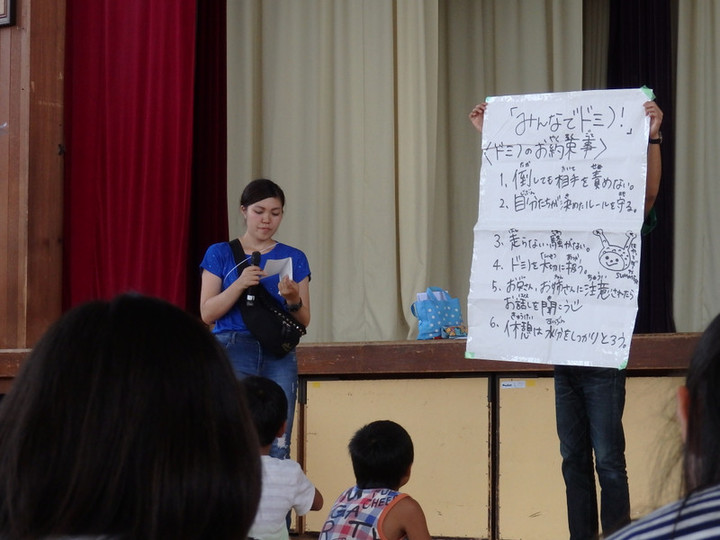 「みんなでドミノ!」
〈ドミノのお約束事〉
1. 倒しても相手を責めない。
2. 自分たちが決めたルールを守る。
3. 走らない、騒がない。
4. ドミノを大切に扱う。
5. お兄さん、お姉さんに注意されたら
お話しを聞こう
6. 休憩は水分をしっかりとろう。